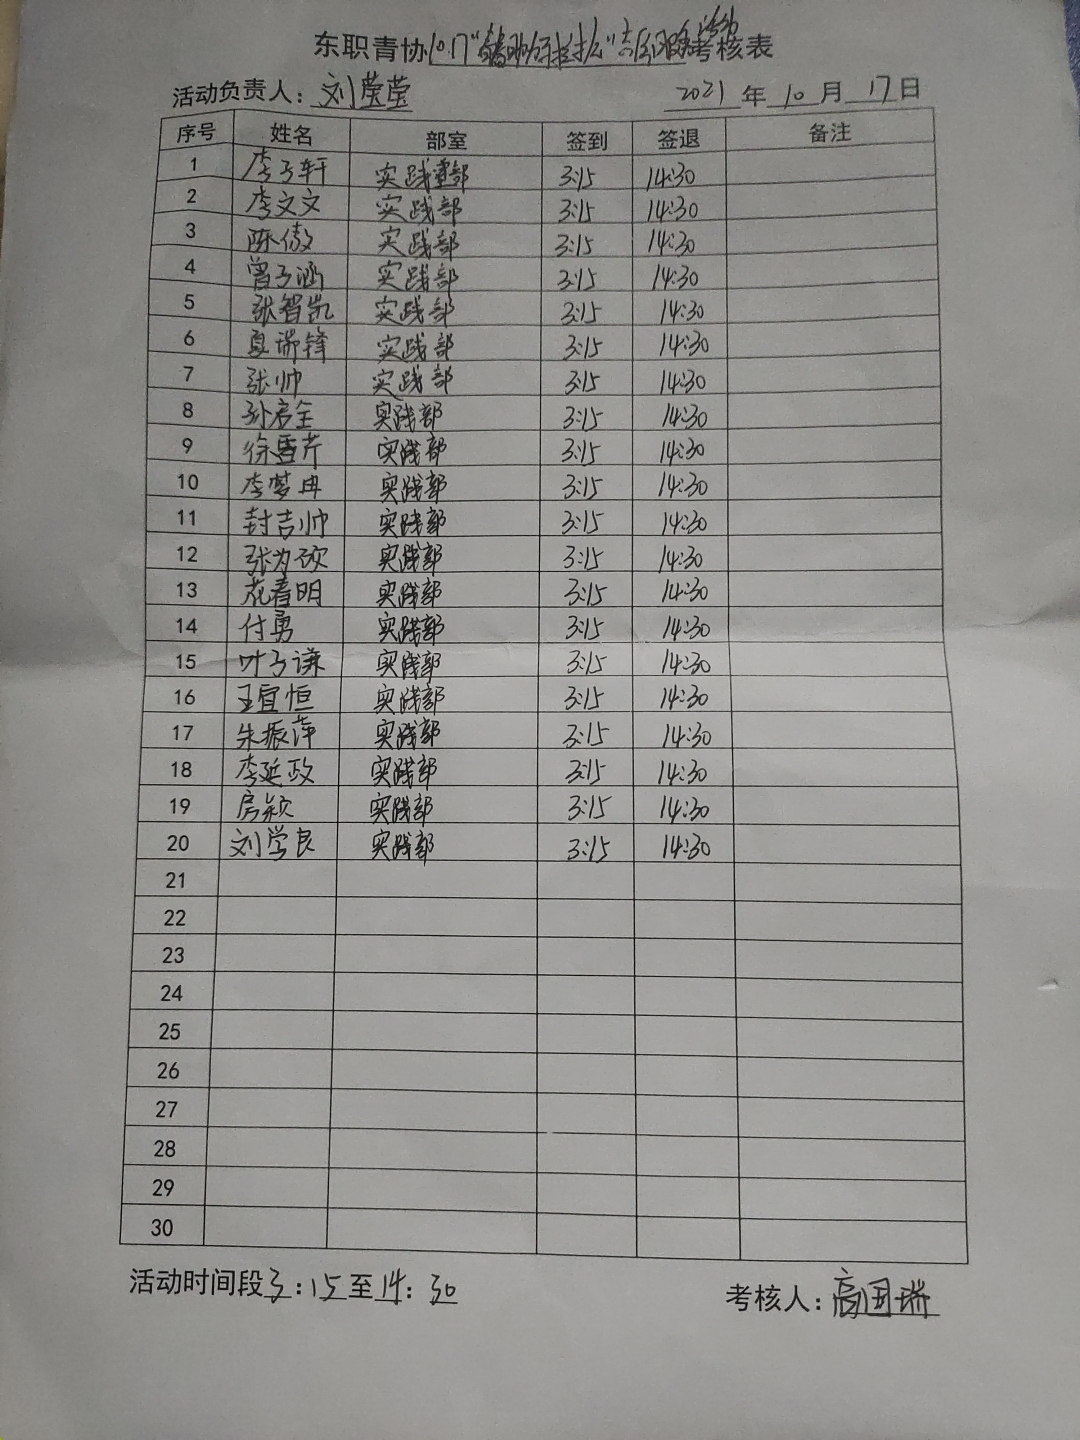 东职青协10.17"考核表
活动负责人：刘莹莹 2021年10月17日
序号 姓名 部室 签到 签退 备注
1 李子轩 实践部 3:15 14:30
2 李文文 实践部 3:15 14:30
3 陈傲 实践部 3:15 14:30
4 曾子涵 实践部 3:15 14:30
5 张智凯 实践部 3:15 14:30
6 夏瑞锋 实践部 3:15 14:30
7 张帅 实践部 3:15 14:30
8 孙启全 实践部 3:15 14:30
9 徐雪芹 实践部 3:15 14:30
10 李梦冉 实践部 3:15 14:30
11 封吉帅 实践部 3:15 14:30
12 张为 实践部 3:15 14:30
13 花春明 实践部 3:15 14:30
14 付勇 实践部 3:15 14:30
15 叶子谦 实践部 3:15 14:30
16 王宜恒 实践部 3:15 14:30
17 朱振萍 实践部 3:15 14:30
18 李延政 实践部 3:15 14:30
19 房颖 实践部 3:15 14:30
20 刘学良 实践部 3:15 14:30
21
22
23
24
25
26
27
28
29
30
活动时间段3:15至14:30 考核人：高国瑞